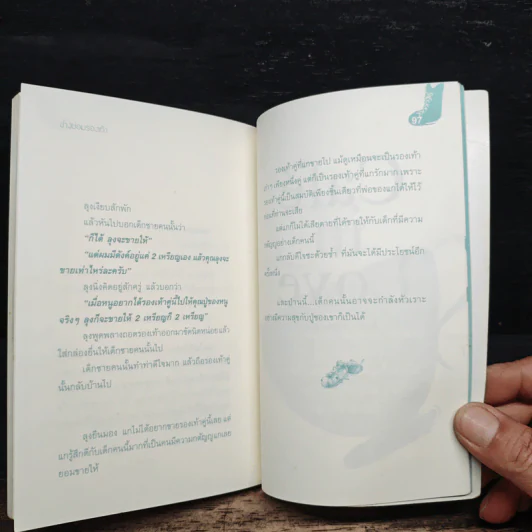 ลุงเงียบสักพัก
แล้วหันไปบอกเด็กชายคนนั้นว่า
“ก็ได้ ลุงจะขายให้”
“แต่ผมมีตังค์อยู่แค่ 2 เหรียญเอง แล้วคุณลุงจะ
ขายเท่าไหร่ละครับ”
ลุงนิ่งคิดอยู่สักครู่ แล้วบอกว่า
“เมื่อหนูอยากได้รองเท้าคู่นี้ไปให้คุณปู่ของหนู
จริงๆ ลุงก็จะขายให้ 2 เหรียญก็ 2 เหรียญ”
ลุงพูดพลางถอดรองเท้าออกมาขัดนิดหน่อยแล้ว
ใส่กล่องยื่นให้เด็กชายคนนั้นไป
เด็กชายคนนั้นทำท่าดีใจมาก แล้วถือรองเท้าคู่
นั้นกลับบ้านไป
ลุงยืนมอง แกไม่ได้อยากขายรองเท้าคู่นี้เลย แต่
แกรู้สึกดีกับเด็กคนนี้มากที่เป็นคนมีความกตัญญูแกเลย
ยอมขายให้
97
รองเท้าคู่ที่แกขายไป แม้ดูเหมือนจะเป็นรองเท้า
เก่าๆ เพียงหนึ่งคู่ แต่ก็เป็นรองเท้าคู่ที่แกรักมาก เพราะ
รองเท้าคู่นี้เป็นสมบัติเพียงชิ้นเดียวที่พ่อของแกได้ให้ไว้
ก่อนที่ท่านจะเสีย
แต่แกก็ไม่ได้เสียดายที่ได้ขายให้กับเด็กที่มีความ
กตัญญูอย่างเด็กคนนี้
แกกลับดีใจซะด้วยซ้ำ ที่มันจะได้มีประโยชน์อีก
ครั้งหนึ่ง
และป่านนี้...เด็กคนนั้นอาจจะกำลังหัวเราะ
อย่างมีความสุขกับปู่ของเขาก็เป็นได้